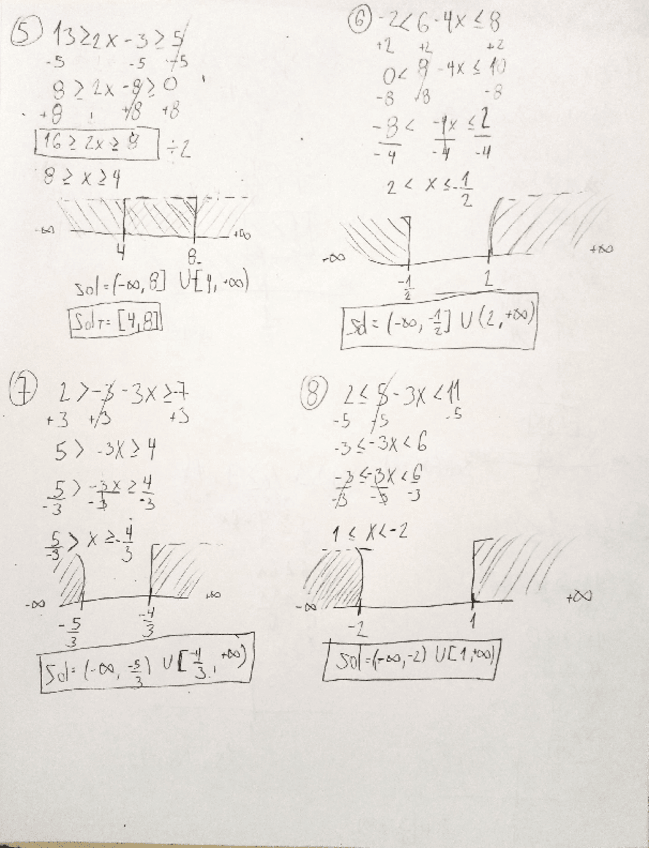 5 13 ≥ 2x - 3 ≥ 5
-5 -5 -5
8 ≥ 2x - 8 ≥ 0
+8 +8 +8
16 ≥ 2x ≥ 8 ÷2
8 ≥ x ≥ 4
-∞ 4 8 +∞
Sol = (-∞, 8] U [4, +∞)
Sol = [4, 8]
6 -2 < 6 - 4x ≤ 8
+2 +2 +2
0 < 8 - 4x ≤ 10
-8 -8 -8
-8 < -4x ≤ 2
-4 -4 -4
2 < x ≤ -1/2
-∞ -1/2 2 +∞
Sol = (-∞, -1/2] U (2, +∞)
7 2 > -3 - 3x ≥ -7
+3 +3 +3
5 > -3x ≥ 4
5/-3 > -3x/-3 ≥ 4/-3
5/-3 > x ≥ -4/3
-∞ -5/3 -4/3 +∞
Sol = (-∞, -5/3) U [-4/3, +∞)
8 2 ≤ 5 - 3x < 11
-5 -5 -5
-3 ≤ -3x < 6
-3/-3 ≤ -3x/-3 < 6/-3
1 ≤ x < -2
-∞ -2 1 +∞
Sol = (-∞, -2) U [1, +∞)